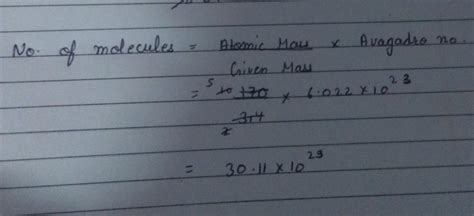 No. of molecules = Atomic Mass × Avagadro no.
Given Mass
= 5 10 170 × 6.022 × 10²³
3.4
2
= 30.11 × 10²³